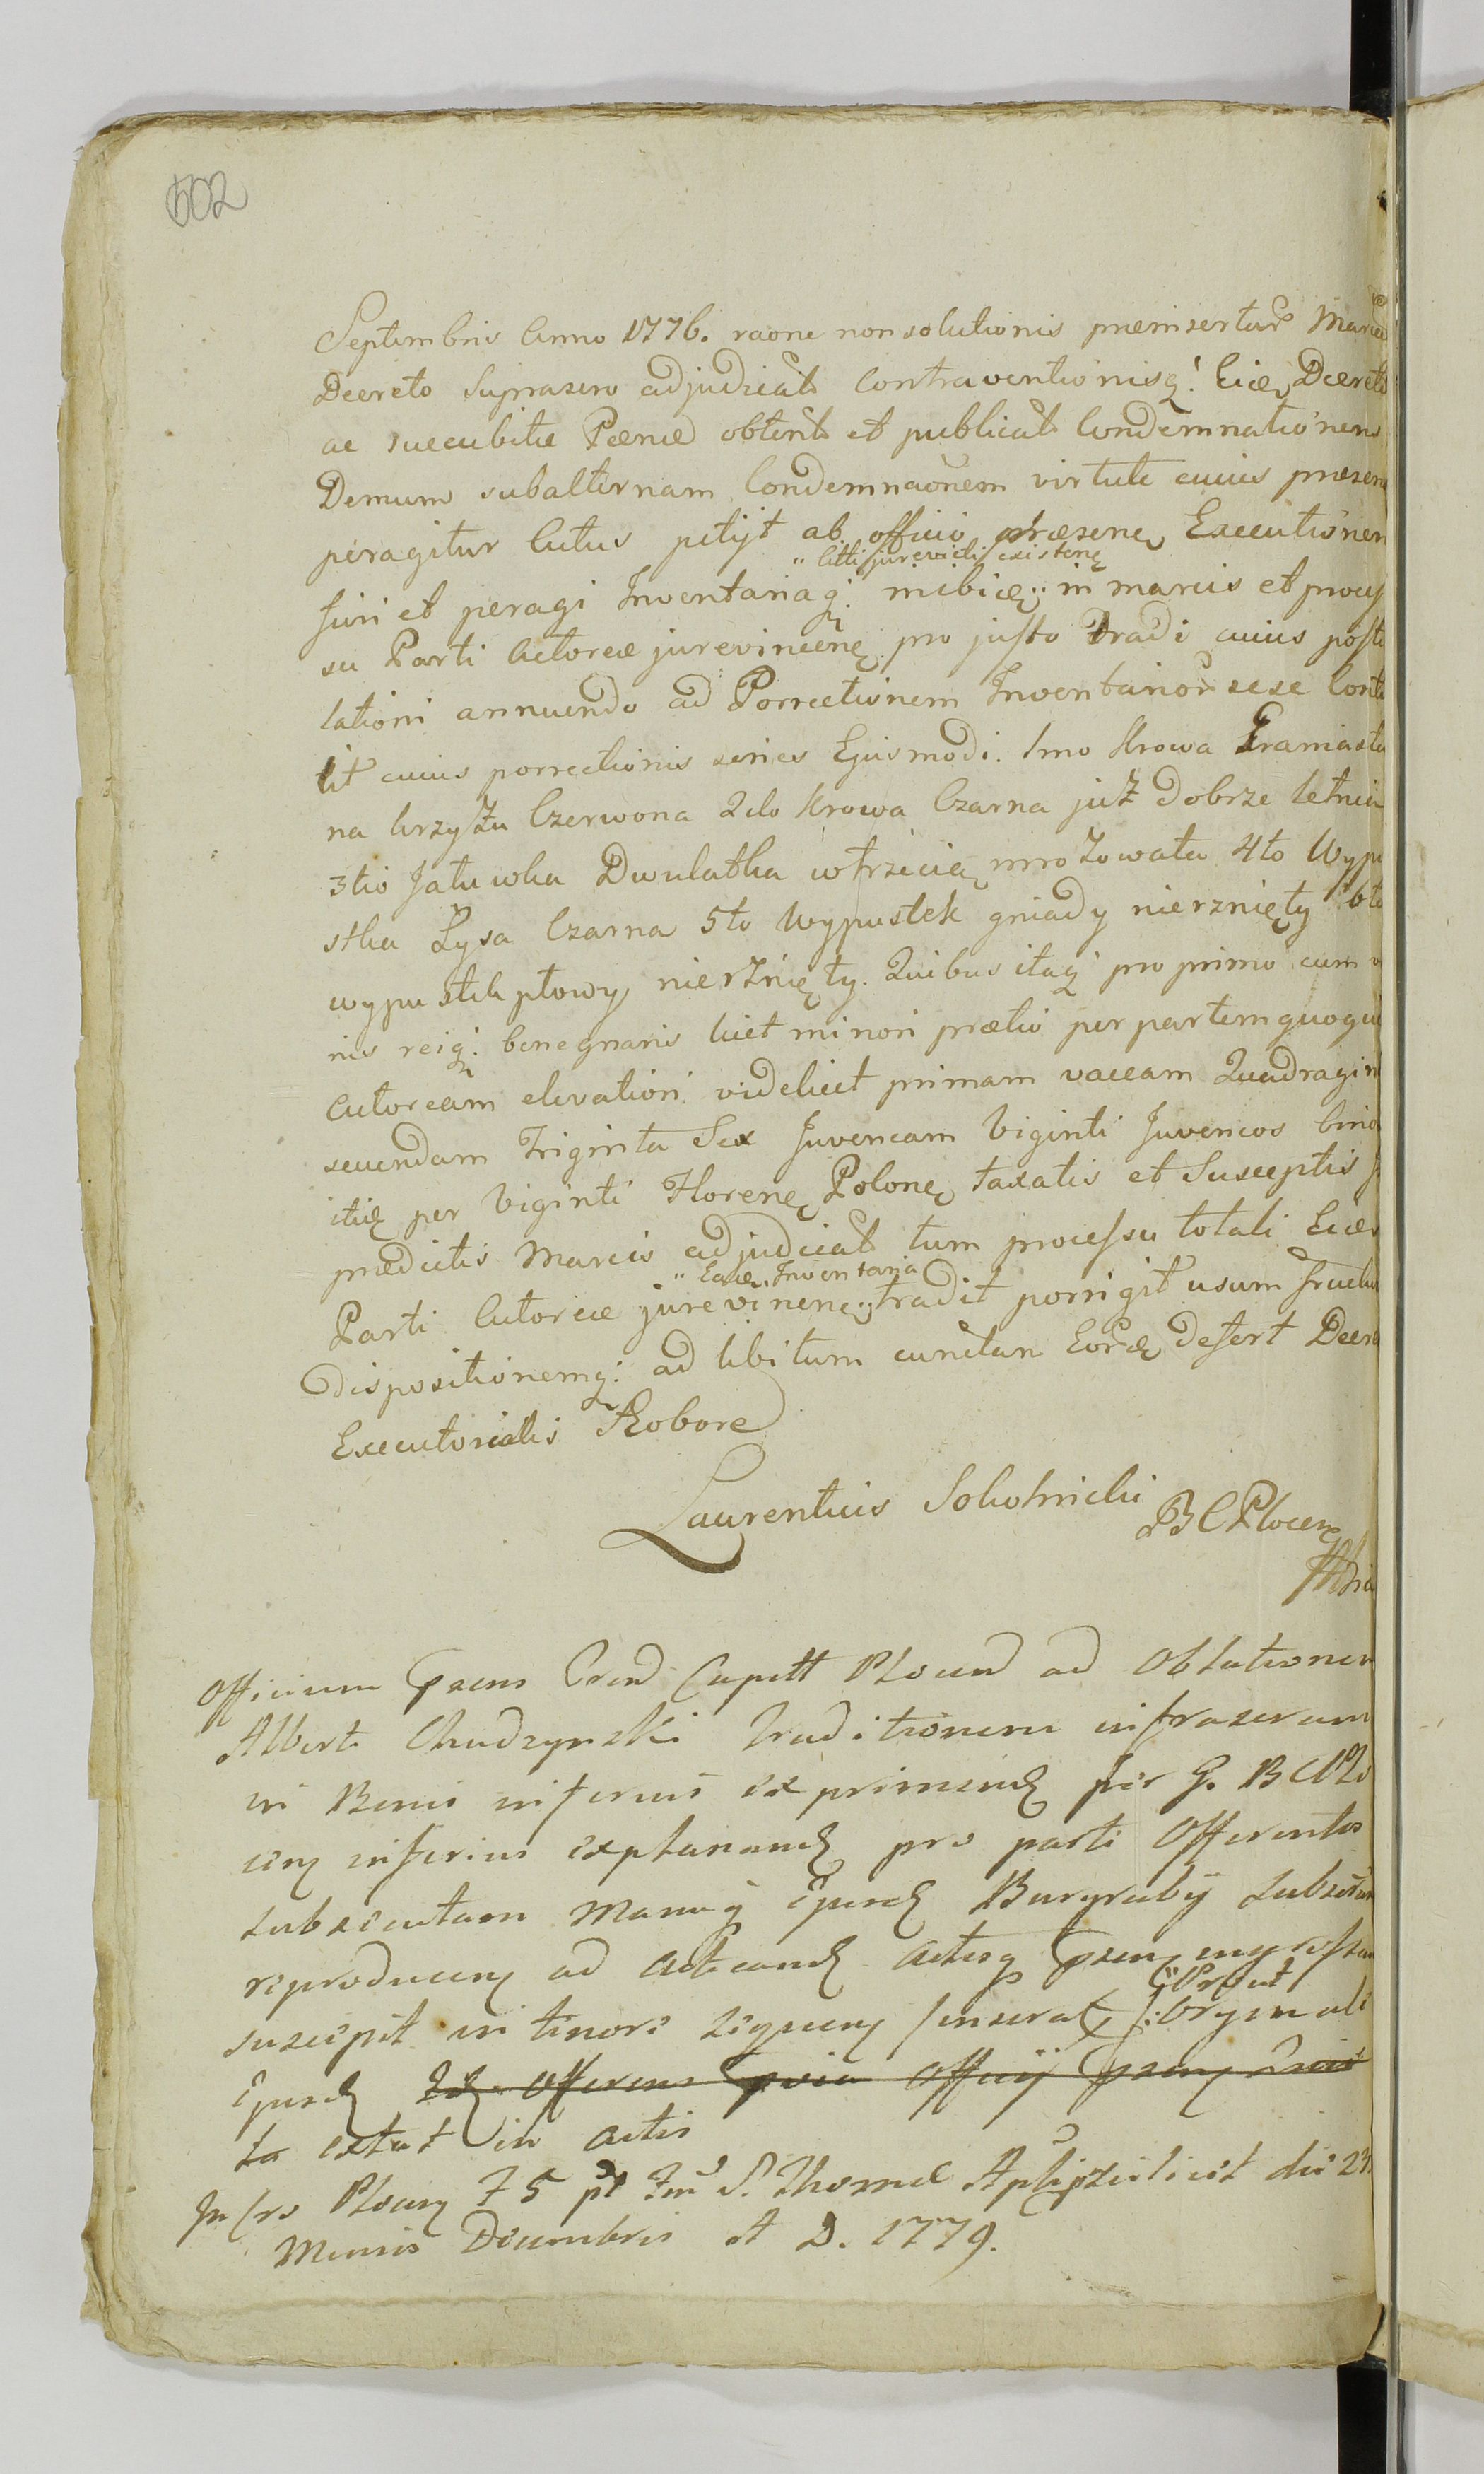 602
Septembris Anno 1776. raone non solutionis præmissertar Marca
Decreto Suprascro adjudicat Contraventionisq: Eidē Decreto
ac succubitæ Pænæ obtent et publicat Condemnationem
Demum subalternam Condemnaōnem virtute cuius præsens
peragitur Actus petijt ab officio præsenę Executionem
" litti jurevicti existenę
fieri et peragi Inventariaq: inibiæ" in marcis et proces
su Parti Actoreæ jurevincenę pro justo Tradi cuius postu
lationi annuendo ad Porrectionem Inventarior sese Contu
lit cuius porrectionis series Ejusmodi. 1mo Krowa Graniasta
na krzyżu Czerwona 2do Krowa Czarna już dobrze letnia
3tio Jałuwka Dwulatka wtrzecię mrożowata 4to Wypu
stka Łysa Czarna 5to Wypustek gniady nierznięty 6to
wypustek płowy nierżnięty. Quibus itaq pro primo cum
nis reiq: benegnaris licet minori prætio per partem quoque
Actoream elevationi videlicet primam vaccam Quadragin
secundam Triginta Sex Juvencam Viginti Juvencos binos
itię per Viginti Florenę Polonę taxatis et Susceptis
prædictis Marcis adjudicat tum processu totali Eidē
" Eadē Inventaria
Parti Actoreæ jurevinenę" tradit porrigit usum fructum
dispositionemq: ad libitum cunctam Eordē defert Decre
Executorialis Robore
Laurentius Sokolnicki BCPlocenę
Officium præsens Crend Capitt Plocend ad Oblationem
Alberti Chudzynski Traditionem infrascram
in Bonis inferius exprimend per G. BCPlo
cenę inferius explanand pro parti Offerentis
subsecutam Manuq Ejusd Burgrabij subscriptam
reproducenę ad Acticand Actisq præsenę ingrossand
suscepit in tenore sequenę Inserat Prout
/: Orginali
Ejusd Id Offerens præsens Officij præsenę
ta extat in actis
In Cro Plocenę F 5 pt Fm S. Thomæ Apli scilicet die 24
Mensis Decembris A D. 1779.